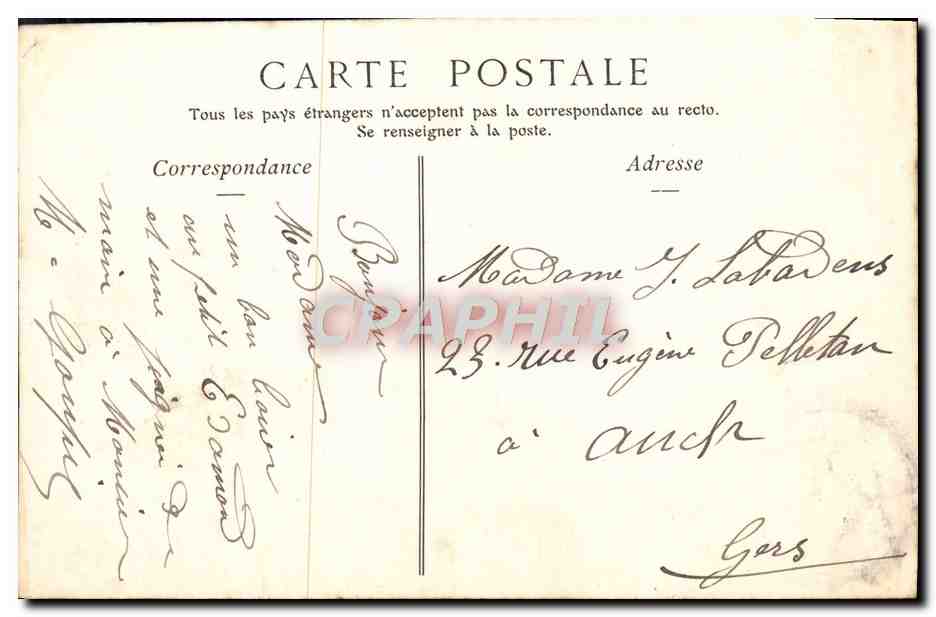 CARTE POSTALE
Tous les pays étrangers n'acceptent pas la correspondance au recto.
Se renseigner à la poste.
Correspondance
Adresse
Bonjour
Mes Dames
un bon baiser
au petit Edamond
et une poignée de
main à Monsieur
M. Goupil
Madame J. Labadens
23. rue Eugène Pelletan
à Auch
Gers
CPAPHIL